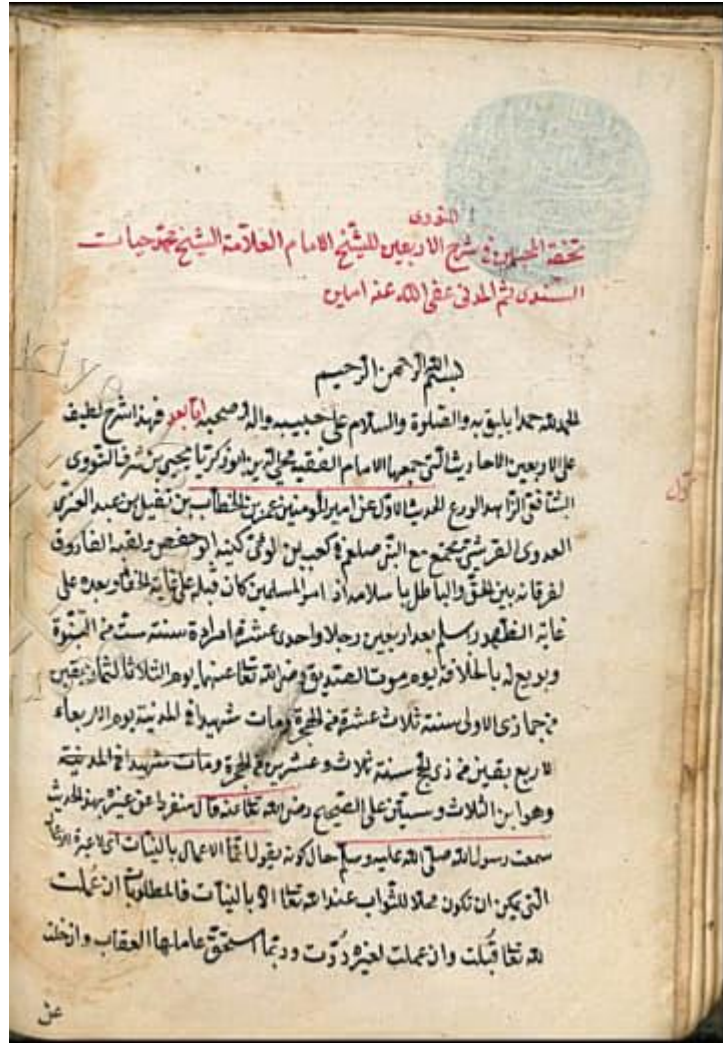 النووى
تحفة المحبين فى شرح الاربعين للشيخ الامام العلامة الشيخ محمد حيات
السندى ثم المدنى عفى الله عنه امين
بسم الله الرحمن الرحيم
الحمد لله حمدا يليق به والصلوة والسلام على حبيبه واله وصحبه اما بعد فهذا شرح لطيف
على الاربعين الاحاديث التى جمعها الامام الفقيه محيى الدين ابو زكريا يحيى بن شرف النووى
الشافعى الزاهد الورع الحديث الاول عن امير المومنين عمر بن الخطاب بن نفيل بن عبد العزى
العدوى القرشى يجتمع مع النبى صلعم فى كعب بن لوئى كنيته ابو حفص ولقبه الفاروق
لفرقانه بين الحق والباطل باسلامه اذ امر المسلمين كان قبله على غاية الخفاء وبعده على
غاية الظهور اسلم بعد اربعين رجلا واحدى عشرة امراة سنة ست من النبوة
وبويع له بالخلافة يوم موت الصديق رضى الله تعا عنهما يوم الثلاثا لثمان بقين
من جمادى الاولى سنة ثلاث عشرة من الهجرة ومات شهيدا فى المدينة يوم الاربعاء
لاربع بقين من ذى الحج سنة ثلاث وعشرين من الهجرة ومات شهيدا فى المدينة
وهو ابن الثلاث وستين على الصحيح رضى الله تعا عنه قال منفردا عن غيره بهذا الحديث
سمعت رسول الله صلى الله عليه وسلم حال كونه يقول انما الاعمال بالنيات اى لا عبرة الاعمال
التى يمكن ان تكون محلا للثواب عند الله تعا الا بالنيات فالمطلوبات ان عملت
لله تعا قبلت وان عملت لغيره ردت وربما استحق عاملها العقاب وان خلت
عن